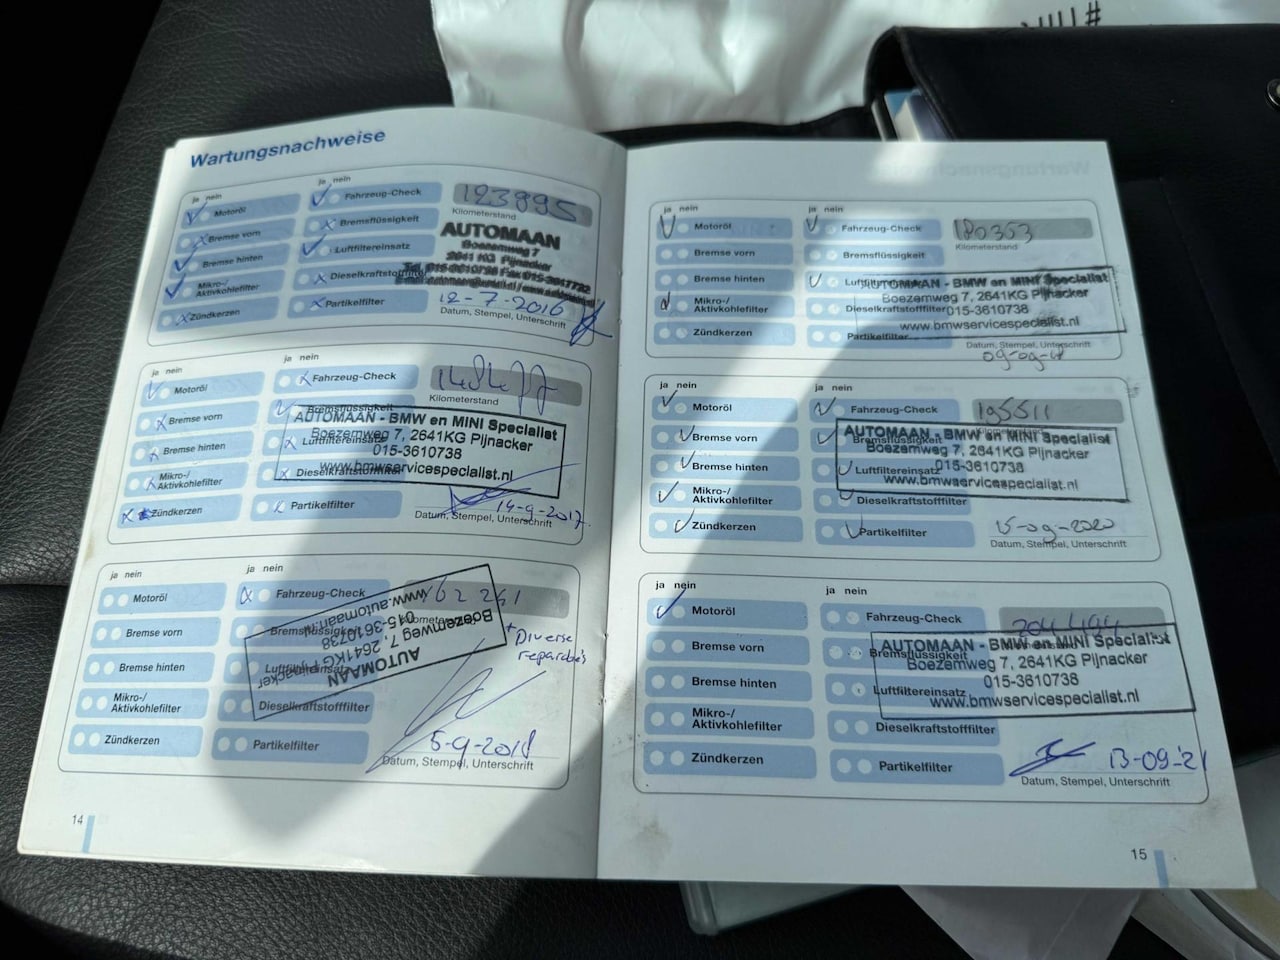 Wartungsnachweise
ja nein
ja nein
Motoröl
Fahrzeug-Check
123895
Kilometerstand
Bremse vorn
Bremsflüssigkeit
AUTOMAAN
Boezemweg 7
2641 KG Pijnacker
Bremse hinten
Luftfiltereinsatz
Mikro-/
Aktivkohlefilter
Dieselkraftstofffilter
12-7-2016
Zündkerzen
Partikelfilter
Datum, Stempel, Unterschrift
ja nein
ja nein
Motoröl
Fahrzeug-Check
Kilometerstand
Bremse vorn
Bremsflüssigkeit
AUTOMAAN - BMW en MINI Specialist
Boezemweg 7, 2641KG Pijnacker
015-3610738
www.bmwservicespecialist.nl
Bremse hinten
Luftfiltereinsatz
Mikro-/
Aktivkohlefilter
Dieselkraftstofffilter
Zündkerzen
Partikelfilter
14-9-2017
Datum, Stempel, Unterschrift
ja nein
ja nein
Motoröl
Fahrzeug-Check
162 261
Kilometerstand
Bremse vorn
Bremsflüssigkeit
AUTOMAAN
Boezemweg 7, 2641KG Pijnacker
015-3610738
www.automaan.nl
+ Diverse
Bremse hinten
Luftfiltereinsatz
Mikro-/
Aktivkohlefilter
Dieselkraftstofffilter
Zündkerzen
Partikelfilter
5-9-2018
Datum, Stempel, Unterschrift
14
ja nein
ja nein
Motoröl
Fahrzeug-Check
180353
Kilometerstand
Bremse vorn
Bremsflüssigkeit
Bremse hinten
Luftfiltereinsatz
AUTOMAAN - BMW en MINI Specialist
Boezemweg 7, 2641KG Pijnacker
015-3610738
www.bmwservicespecialist.nl
Mikro-/
Aktivkohlefilter
Dieselkraftstofffilter
Zündkerzen
Partikelfilter
Datum, Stempel, Unterschrift
ja nein
ja nein
Motoröl
Fahrzeug-Check
195511
Kilometerstand
Bremse vorn
Bremsflüssigkeit
AUTOMAAN - BMW en MINI Specialist
Boezemweg 7, 2641KG Pijnacker
015-3610738
www.bmwservicespecialist.nl
Bremse hinten
Luftfiltereinsatz
Mikro-/
Aktivkohlefilter
Dieselkraftstofffilter
Zündkerzen
Partikelfilter
15-09-2020
Datum, Stempel, Unterschrift
ja nein
ja nein
Motoröl
Fahrzeug-Check
204494
Bremse vorn
Bremsflüssigkeit
AUTOMAAN - BMW en MINI Specialist
Boezemweg 7, 2641KG Pijnacker
015-3610738
www.bmwservicespecialist.nl
Bremse hinten
Luftfiltereinsatz
Mikro-/
Aktivkohlefilter
Dieselkraftstofffilter
Zündkerzen
Partikelfilter
13-09-'21
Datum, Stempel, Unterschrift
15